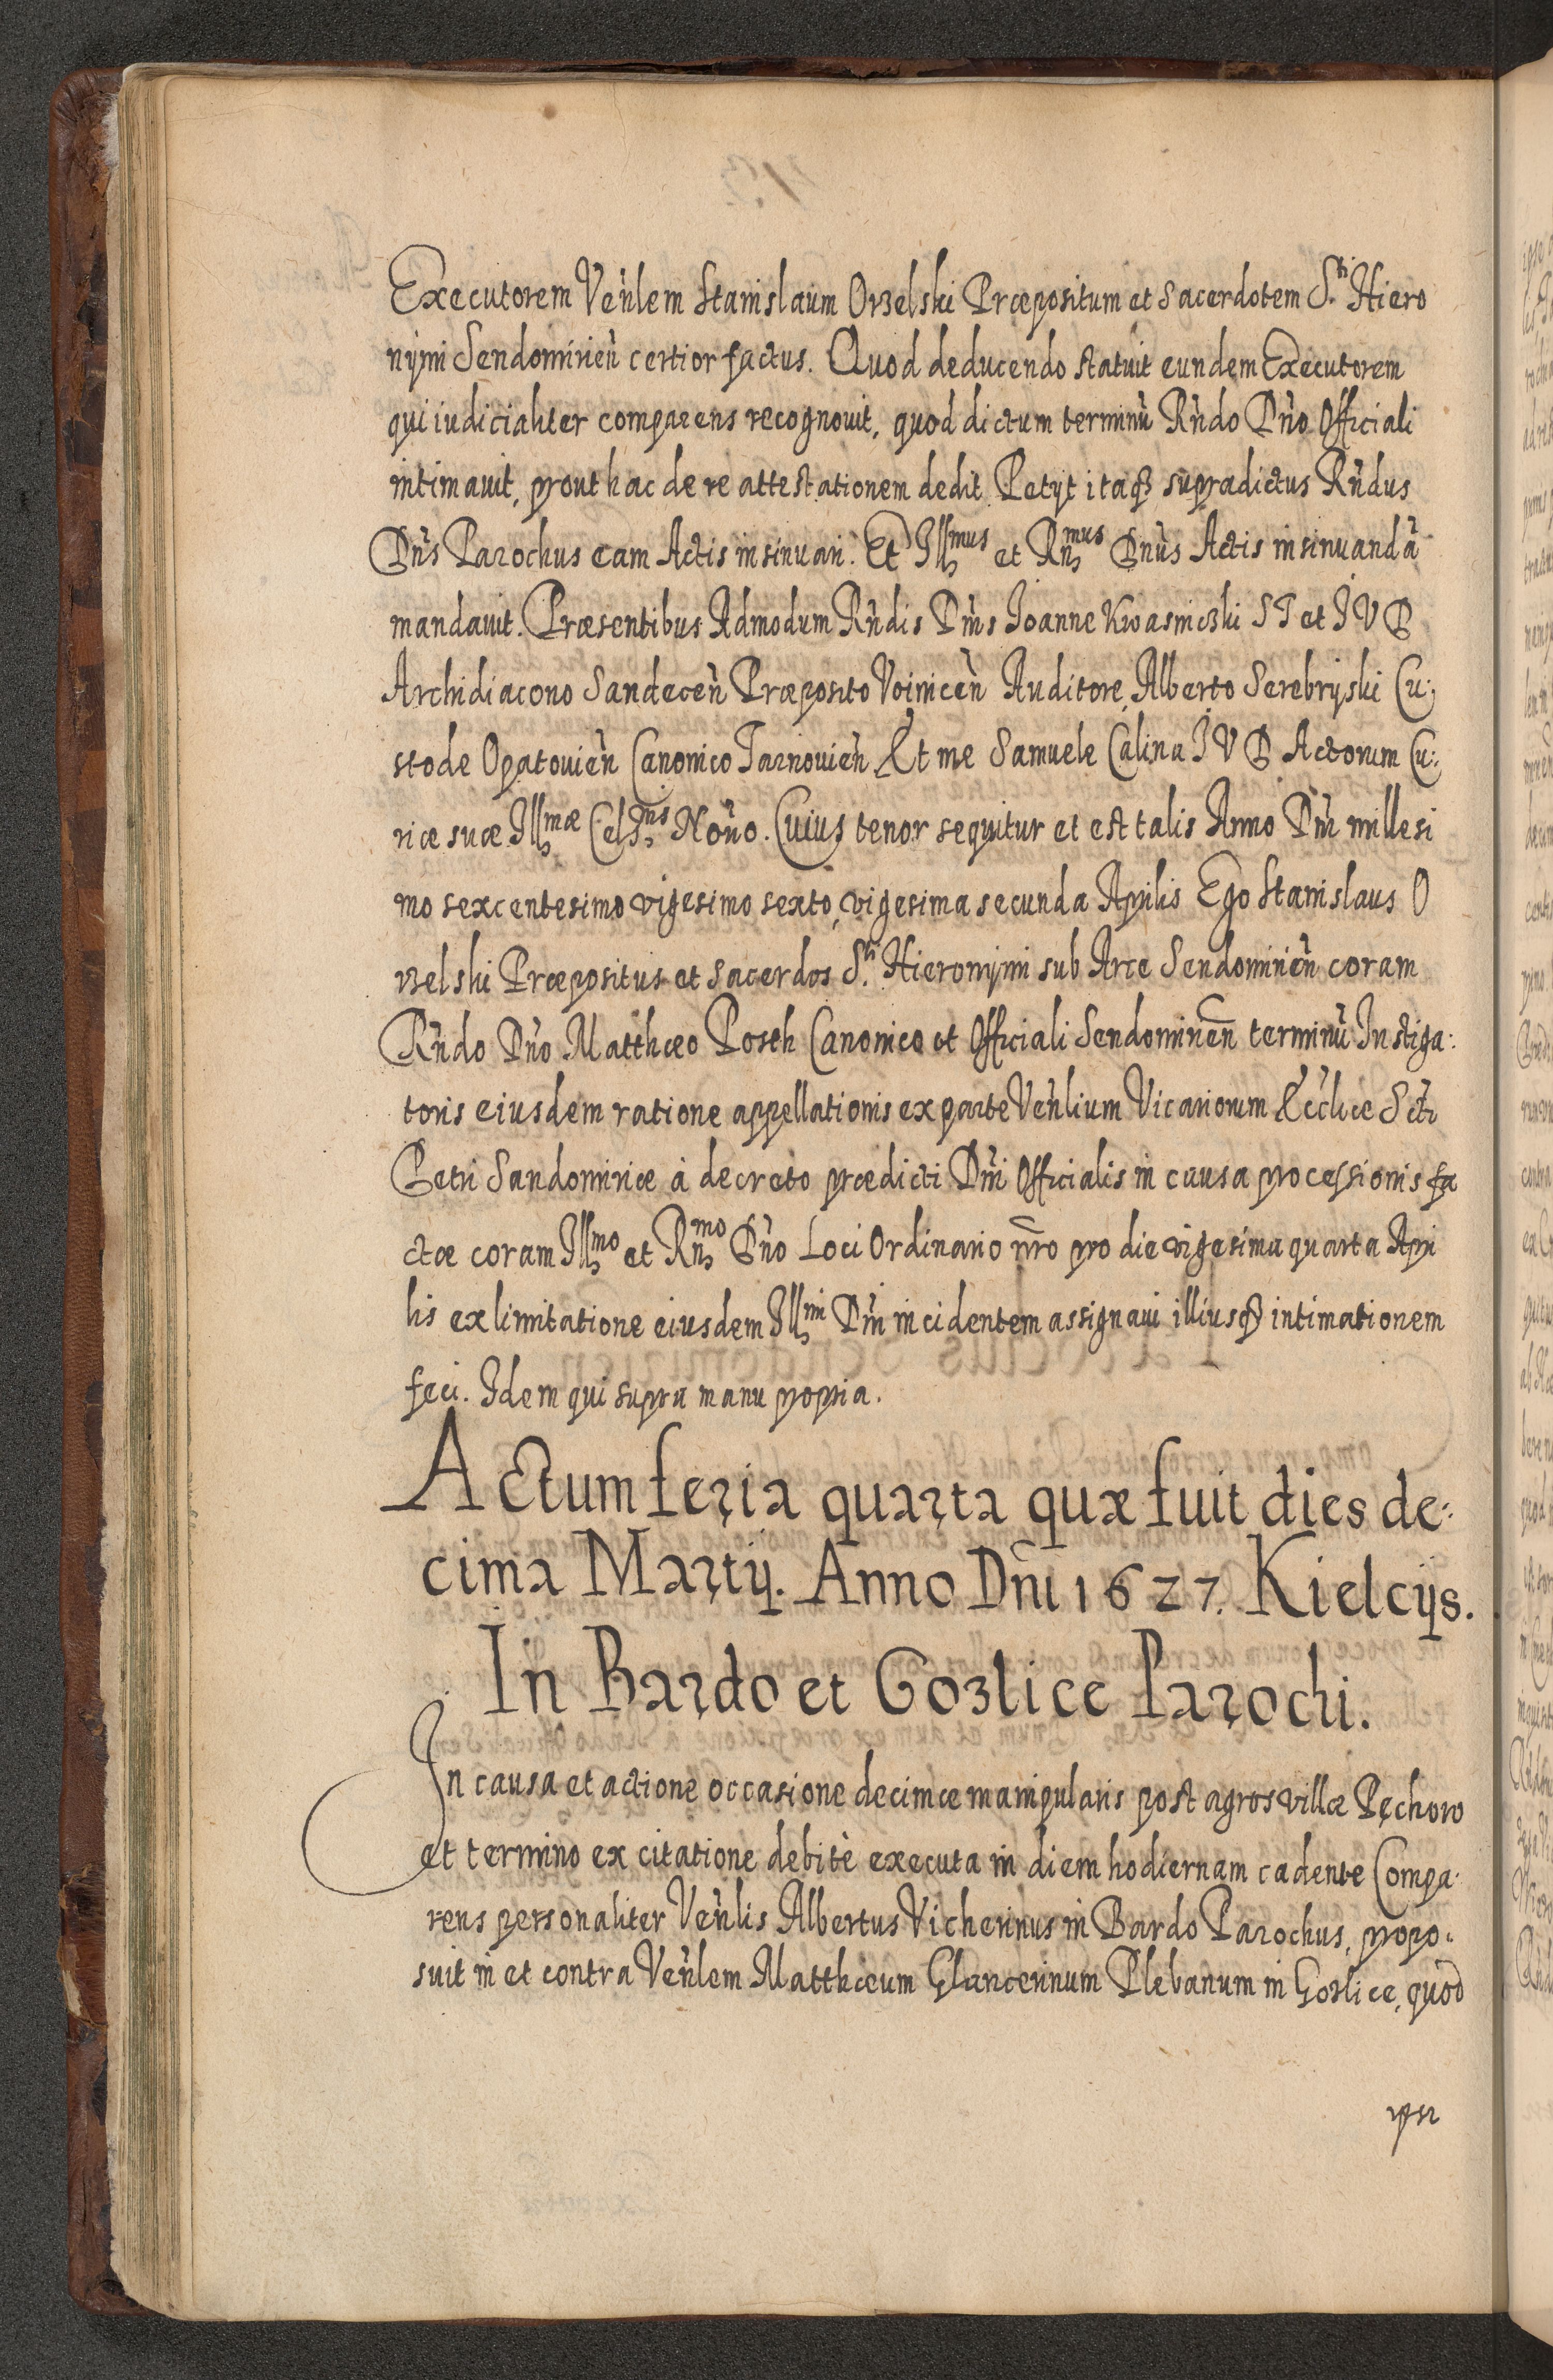 Executorem Ven̄lem Stanislaum Orzelski Præpositum et Sacerdotem S.ti Hiero
nymi Sendomirien̄ certior factus. Quod deducendo statuit eundem Executorem
qui iudicialiter comparens recognovit, quod dictum terminū Rn̄do Dn̄o Officiali
intimavit, prout hac de re attestationem dedit. Petyt itaq₃ supradictus Rn̄dus
Dn̄s Parochus eam Actis insinuari. Et Ill.mus et Rn.mus Dn̄us Actis insinuandā
mandavit. Præsentibus Admodum Rn̄dis Dn̄is Joanne Kwasniczki S T et J V D
Archidiacono Sandecen̄ Præposito Voinicen̄ Auditore, Alberto Serebryski Cu:
stode Opatovien̄ Canonico Tarnovien̄ Et me Samuele Calina J V D Actorum Cu:
riæ suæ Ill.mæ Cels.nis Notī͞o. Cuius tenor sequitur et est talis. Anno Dn̄i millesi
mo sexcentesimo vigesimo sexto, vigesima secunda Aprilis Ego Stanislaus O
rzelski Præpositus et Sacerdos S.ti Hieronymi sub Arce Sendomirien̄ coram
Rn̄do Dn̄o Matthæo Posth Canonico et Officiali Sendomirien̄ terminū Instiga:
toris eiusdem ratione appellationis ex parte Ven̄lium Vicariorum Ecc̄liæ Sc̄ti
Petri Sandomiriæ à decreto prædicti Dn̄i Officialis in causa processionis fa
ctæ coram Ill.mo et Rn.mo Dn̄o Loci Ordinario nr̄o pro die vigesima quarta Apri
lis ex limitatione eiusdem Ill.mi Dn̄i incidentem assignavi illiusq₃ intimationem
feci. Idem qui supra manu propria.
Actum feria quarta quæ fuit dies de:
cima Martij. Anno Dn̄i 1627. Kielcijs.
In Bardo et Gozlice Parochi.
In causa et actione occasione decimæ manipularis post agros villæ Pęchow
et termino ex citatione debitè executa in diem hodiernam cadente Compa:
rens personaliter Ven̄lis Albertus Vicherinus in Bardo Parochus, propo:
suit in et contra Ven̄lem Matthæum Glancerinum Plebanum in Gozlice, quod